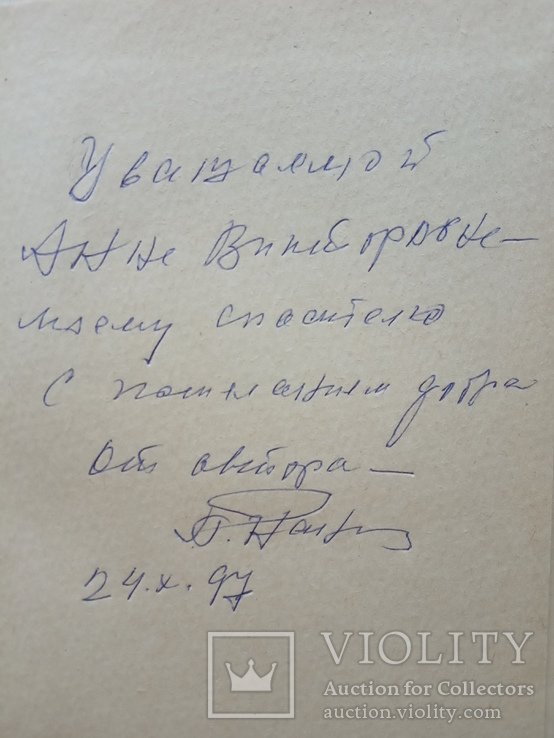 Уважаемой
Анне Викторовне –
моему спасителю
с пожеланием добра
от автора –
24.X.97
VIOLITY
Auction for Collectors
auction.violity.com